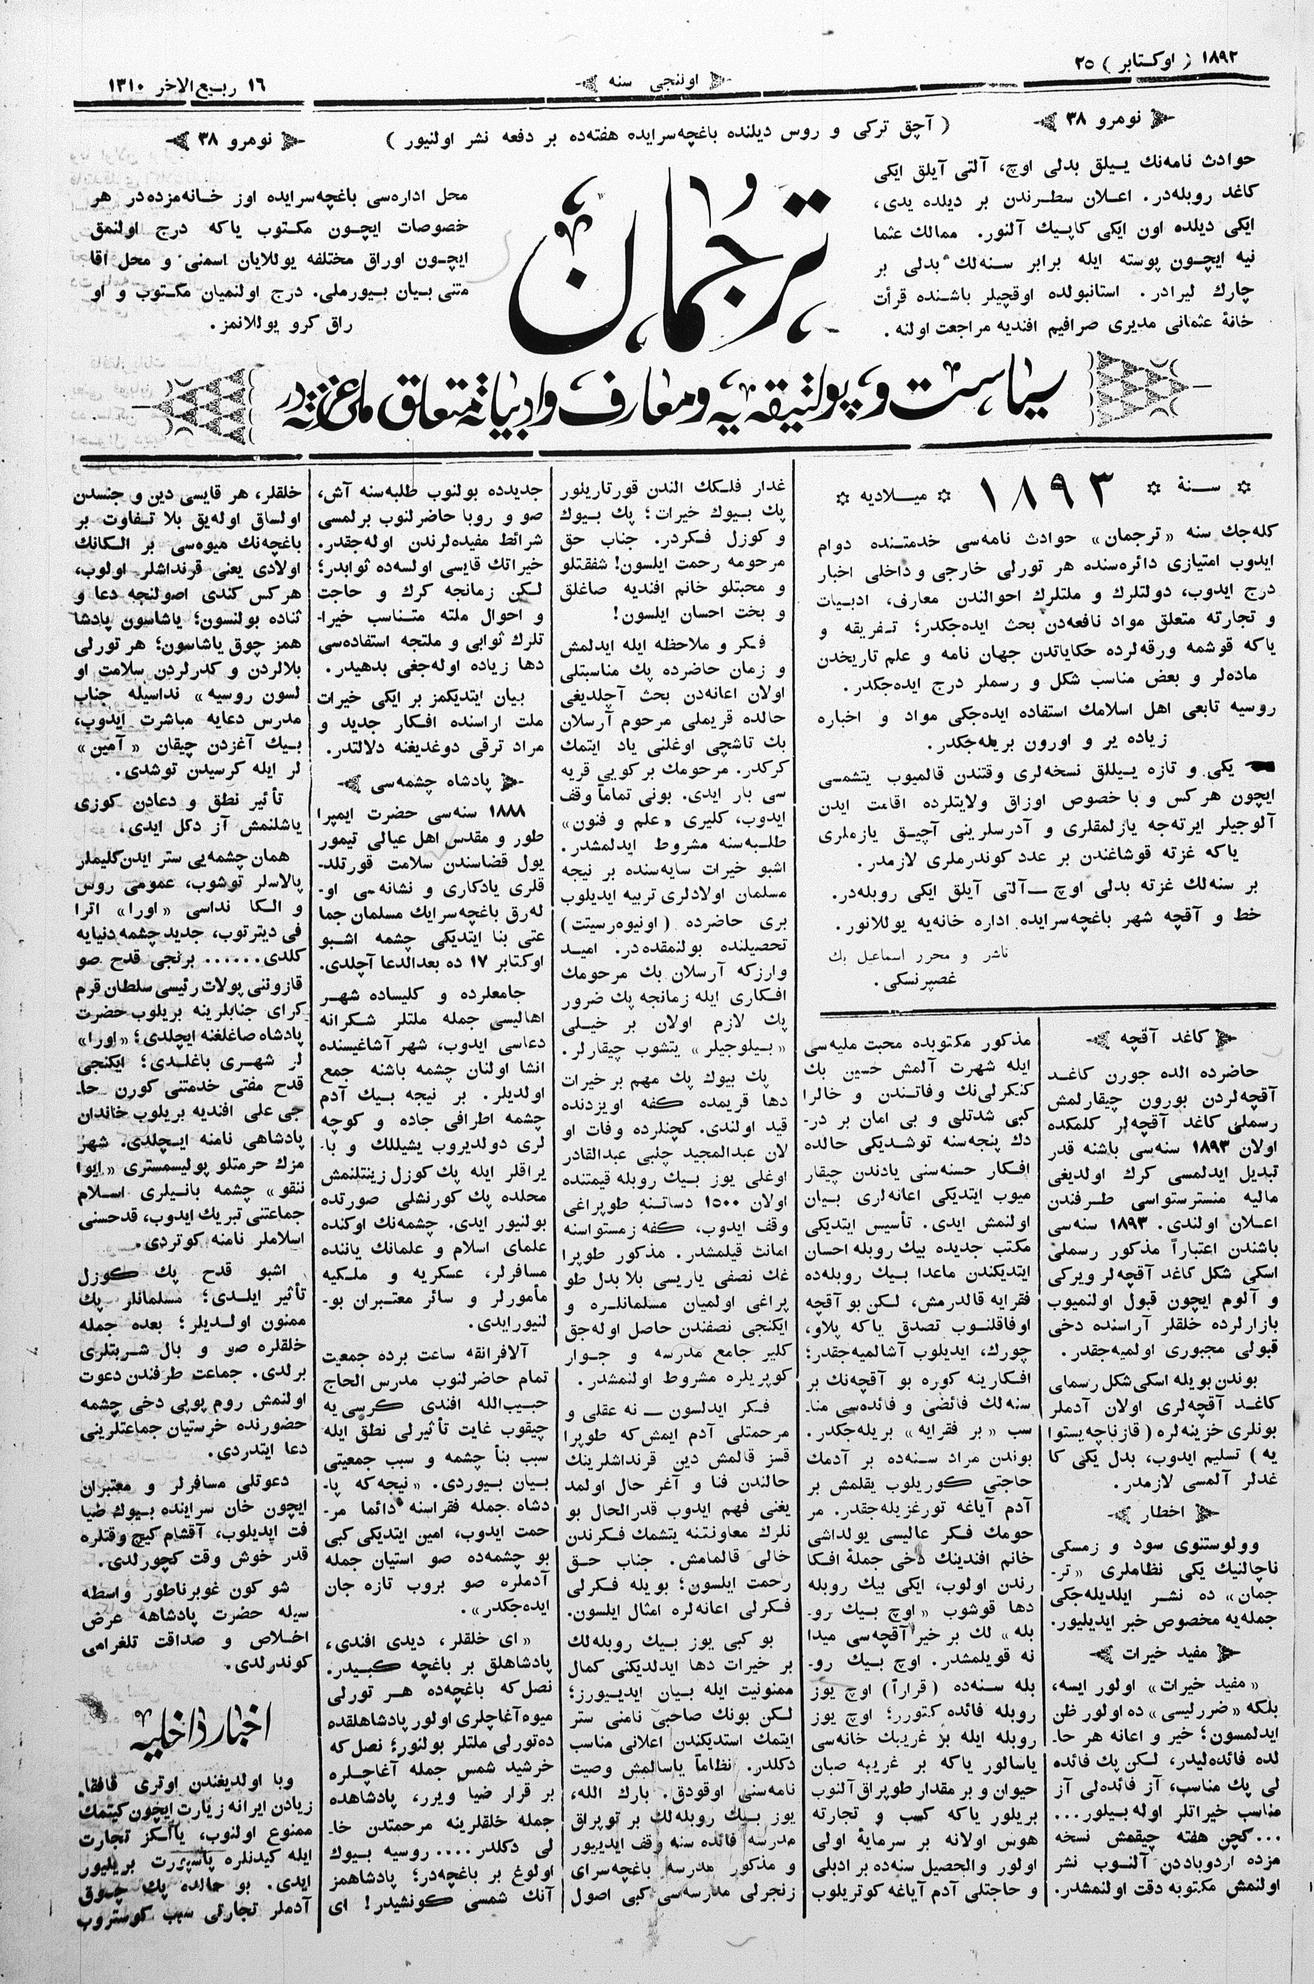 ١٨٩٢ ( اوكتابر ) ٢٥
اوننجی سنه
١٦ ربیع الاخر ١٣١٠
نومرو ٣٨
( آچق تركی و روس دیلنده باغچه سرایده هفته‌ده بر دفعه نشر اولنیور )
نومرو ٣٨
حوادث نامه‌نك ییلق بدلی اوچ، آلتی آیلق ایكی
كاغد روبله‌در. اعلان سطرندن بر دیلده یدی،
ایكی دیلده اون ایكی كاپیك آلنور. ممالك عثما
نیه ایچون پوسته ایله برابر سنه‌لك بدلی بر
چارك لیرادر. استانبولده اوقچیلر باشنده قرأت
خانهٔ عثمانی مدیری صرافیم افندیه مراجعت اولنه.
ترجمان
محل اداره‌سی باغچه سرایده اوز خانه‌مزده‌در هر
خصوصات ایچون مكتوب یاكه درج اولنمق
ایچون اوراق مختلفه یوللایان اسمنی و محل اقا
متنی بیان بیورملی. درج اولنمیان مكتوب و او
راق كرو یوللانمز.
سیاست و پولتیقه یه و معارف و ادبیاته متعلق ملی غزته در
سنهٔ ١٨٩٣ میلادیه
كله‌جك سنه «ترجمان» حوادث نامه‌سی خدمتنده دوام
ایدوب امتیازی دائره‌سنده هر تورلی خارجی و داخلی اخبار
درج ایدوب، دولتلرك و ملتلرك احوالندن معارف، ادبیات
و تجارته متعلق مواد نافعه‌دن بحث ایده‌جكدر؛ تفریقه و
یاكه قوشمه ورقه‌لرده حكایاتدن جهان نامه و علم تاریخدن
ماده‌لر و بعض مناسب شكل و رسملر درج ایده‌جكدر.
روسیه تابعی اهل اسلامك استفاده ایده‌جكی مواد و اخباره
زیاده یر و اورون بریله‌جكدر.
یكی و تازه ییللق نسخه‌لری وقتندن قالمیوب یتشمسی
ایچون هر كس و با خصوص اوزاق ولایتلرده اقامت ایدن
آلوجیلر ایرته‌جه یازلمقلری و آدرسلرینی آچیق یازملری
یاكه غزته قوشاغندن بر عدد كوندرملری لازمدر.
بر سنه‌لك غزته بدلی اوچ — آلتی آیلق ایكی روبله‌در.
خط و آقچه شهر باغچه سرایده اداره خانه‌یه یوللانور.
ناشر و محرر اسماعیل بك
غصپرنسكی.
كاغد آقچه
حاضرده الده جورن كاغد
آقچه‌لردن بورون چیقارلمش
رسملی كاغد آقچه‌لر كلمكده
اولان ١٨٩٣ سنه‌سی باشنه قدر
تبدیل ایدلمسی كرك اولدیغی
مالیه منسترستواسی طرفندن
اعلان اولندی. ١٨٩٣ سنه‌سی
باشندن اعتباراً مذكور رسملی
اسكی شكل كاغد آقچه‌لر ویركی
و آلوم ایچون قبول اولنمیوب
بازارلرده خلقلر آراسنده دخی
قبولی مجبوری اولمیه‌جقدر.
بوندن بویله اسكی شكل رسمای
كاغد آقچه‌لری اولان آدملر
بونلری خزینه‌لره ( قازناچه‌یستوا
یه ) تسلیم ایدوب، بدل یكی كا
غدلر آلمسی لازمدر.
اخطار
وولوستنوی سود و زمسكی
ناچالنیك یكی نظاملری «تر-
جمان» ده نشر ایلدیله‌جكی
جمله‌یه مخصوص خبر ایدیلیور.
مفید خیرات
«مفید خیرات» اولور ایسه،
بلكه «ضررلیسی» ده اولور ظن
ایدلمسون؛ خیر و اعانه هر حا-
لده فائده‌لیدر، لكن پك فائده
لی پك مناسب، آز فائده‌لی آز
مناسب خیراتلر اوله بیلور...
...كچن هفته چیقمش نسخه
مزده اردوباددن آلنوب نشر
اولنمش مكتوبه دقت اولنمشدر.
مذكور مكتوبده محبت ملیه‌سی
ایله شهرت آلمش حسین بك
كنكرلی‌نك وفاتندن و خالرا
كبی شدتلی و بی امان بر در-
دك پنجه‌سنه توشدیكی حالده
افكار حسنه‌سنی یادندن چیقار
میوب ایتدیكی اعانه‌لری بیان
اولنمش ایدی. تأسیس ایتدیكی
مكتب جدیده بیك روبله احسان
ایتدیكندن ماعدا بیك روبله‌ده
فقرایه قالدرمش، لكن بو آقچه
اوفاقلنوب تصدق یاكه پلاو،
چورك، ایدیلوب آشالمیه‌جقدر؛
افكارینه كوره بو آقچه‌نك بر
سنه‌لك فائضی و فائده‌سی منا-
سب «بر فقرایه» بریله‌جكدر.
بوندن مراد سنه‌ده بر آدمك
حاجتی كوریلوب یقلمش بر
آدم آیاغه تورغزیله‌جقدر. مر
حومك فكر عالیسی یولداشی
خانم افندینك دخی جملهٔ افكا
رندن اولوب، ایكی بیك روبله
دها قوشوب «اوچ بیك رو-
بله» لك بر خیر آقچه‌سی میدا
نه قویلمشدر. اوچ بیك رو-
بله سنه‌ده (قراراً) اوچ یوز
روبله فائده كتورر؛ اوچ یوز
روبله ایله بر غریبك خانه‌سی
یاسالور یاكه بر غریبه صبان
حیوان و بر مقدار طوپراق آلنوب
بریلور یاكه كسب و تجارته
هوس اولانه بر سرمایهٔ اولی
اولور والحصیل سنه‌ده بر ادبلی
و حاجتلی آدم آیاغه كوتریلوب
غدار فلكك الندن قورتاریلور
پك بیوك خیرات؛ پك بیوك
و كوزل فكردر. جناب حق
مرحومه رحمت ایلسون! شفقتلو
و محبتلو خانم افندیه صاغلق
و بخت احسان ایلسون!
فكر و ملاحظه ایله ایدلمش
و زمان حاضرده پك مناسبتلی
اولان اعانه‌دن بحث آچلدیغی
حالده قریملی مرحوم آرسلان
بك تاشچی اوغلنی یاد ایتمك
كركدر. مرحومك بر كویی قریه
سی بار ایدی. بونی تماماً وقف
ایدوب، كلیری «علم و فنون»
طلبه‌سنه مشروط ایدلمشدر.
اشبو خیرات سایه‌سنده بر نیچه
مسلمان اولادلری تربیه ایدیلوب
بری حاضرده (اونیوه‌رسیتت)
تحصیلنده بولنمقده‌در. امید
وارزكه آرسلان بك مرحومك
افكاری ایله زمانجه پك ضرور
پك لازم اولان بر خیلی
«بیلوجیلر» یتشوب چیقارلر.
پك بیوك پك مهم بر خیرات
دها قریمده كفه اویزدنده
قید اولندی. كچنلرده وفات او
لان عبدالمجید چلبی عبدالقادر
اوغلی یوز بیك روبله قیمتنده
اولان ١٥٠٠ دساتنه طوپراغی
وقف ایدوب، كفه زمستواسنه
امانت قیلمشدر. مذكور طوپرا
غك نصفی یاریسی بلا بدل طو
پراغی اولمیان مسلمانلره و
ایكنجی نصفندن حاصل اوله‌جق
كلیر جامع مدرسه و جوار
كوپریلره مشروط اولنمشدر.
فكر ایدلسون — نه عقلی و
مرحمتلی آدم ایمش‌كه طوپرا
قسز قالمش دین قرنداشلرینك
حالندن فنا و آغر حال اولمد
یغنی فهم ایدوب قدر الحال بو
نلرك معاونتنه یتشمك فكرندن
خالی قالمامش. جناب حق
رحمت ایلسون؛ بویله فكرلی
فكرلی اعانه‌لره امثال ایلسون.
بو كبی یوز بیك روبله‌لك
بر خیرات دها ایدلدیكنی كمال
ممنونیت ایله بیان ایدییورز؛
لكن بونك صاحبی نامنی ستر
ایتمك استدیكندن اعلانی مناسب
دكلدر. نظاماً یاسالمش وصیت
نامه‌سنی اوقودق. بارك الله،
یوز بیك روبله‌لك بر توپراق
مدرسه فائده سنه وقف ایدییور
و مذكور مدرسه باغچه سرای
زنجرلی مدرسه‌سی كبی اصول
جدیدده بولنوب طلبه‌سنه آش،
صو و روبا حاضرلنوب برلمسی
شرائط مفیده‌لرندن اوله‌جقدر.
خیراتك قایسی اولسه‌ده ثوابدر؛
لكن زمانجه كرك و حاجت
و احوال ملته متناسب خیرا-
تلرك ثوابی و ملتجه استفاده‌سی
دها زیاده اوله‌جغی بدهیدر.
بیان ایتدیكمز بر ایكی خیرات
ملت اراسنده افكار جدید و
مراد ترقی دوغدیغنه دلالتدر.
پادشاه چشمه‌سی
١٨٨٨ سنه‌سی حضرت ایمپرا
طور و مقدس اهل عیالی تیمور
یول قضاسندن سلامت قورتلد-
قلری یادكاری و نشانه‌سی او-
له‌رق باغچه سرایك مسلمان جما
عتی بنا ایتدیكی چشمه اشبو
اوكتابر ١٧ ده بعدالدعا آچلدی.
جامعلرده و كلیساده شهر
اهالیسی جمله ملتلر شكرانه
دعاسی ایدوب، شهر آشاغیسنده
انشا اولنان چشمه باشنه جمع
اولدیلر. بر نیچه بیك آدم
چشمه اطرافی جاده و كوچه
لری دولدیروب یشیللك و با-
یراقلر ایله پك كوزل زینتلنمش
محلده پك كورنشلی صورتده
بولنیور ایدی. چشمه‌نك اوكنده
علمای اسلام و علمانك یاننده
مسافرلر، عسكریه و ملكیه
مأمورلر و سائر معتبران بو-
لنیور ایدی.
آلافرانقه ساعت برده جمعیت
تمام حاضرلنوب مدرس الحاج
حبیب‌الله افندی كرسی یه
چیقوب غایت تأثیرلی نطق ایله
سبب بنأ چشمه و سبب جمعیتی
بیان بیوردی. «نیجه‌كه پا-
دشاه جمله فقراسنه دائما مر-
حمت ایدوب، امین ایتدیكی كبی
بو چشمه‌ده صو استیان جمله
آدملره صو بروب تازه جان
ایده‌جكدر».
«ای خلقلر، دیدی افندی،
پادشاهلق بر باغچه كبیدر.
نصل‌كه باغچه‌ده هر تورلی
میوه آغاچلری اولور پادشاهلقده
ده تورلی ملتلر بولنور؛ نصل كه
خرشید شمس جمله آغاچلره
بر قرار ضیا ویرر، پادشاهده
جمله خلقلرینه مرحمتدن خا-
لی دكلدر.... روسیه بیوك
اولوغ بر باغچه‌در؛ پادشاهمز
آنك شمسی كونشیدر! ای
خلقلر، هر قایسی دین و جنسدن
اولساق اوله‌یق بلا تفاوت بر
باغچه‌نك میوه‌سی بر الكانك
اولادی یعنی قرنداشلر اولوب،
هر كس كندی اصولنجه دعا و
ثناده بولنسون؛ یاشاسون پادشا
همز چوق یاشاسون؛ هر تورلی
بلالردن و كدرلردن سلامت او
لسون روسیه» نداسیله جناب
مدرس دعایه مباشرت ایدوب،
بیك آغزدن چیقان «آمین»
لر ایله كرسیدن توشدی.
تأثیر نطق و دعادن كوزی
یاشلنمش آز دكل ایدی.
همان چشمه‌یی ستر ایدن كلیملر
پالاسلر توشوب، عمومی روس
و الكا نداسی «اورا» اترا
فی دیترتوب، جدید چشمه دنیایه
كلدی...... برنجی قدح صو
قازوننی پولات رئیسی سلطان قرم
كرای جنابلرینه بریلوب حضرت
پادشاه صاغلغنه ایچلدی؛ «اورا»
لر شهری باغلدی؛ ایكنجی
قدح مفتی خدمتنی كورن حا-
جی علی افندیه بریلوب خاندان
پادشاهی نامنه ایچلدی. شهر
مزك حرمتلو پولیسمستری «ایوا
ننقو» چشمه بانیلری اسلام
جماعتنی تبریك ایدوب، قدحسنی
اسلاملر نامنه كوتردی.
اشبو قدح پك كوزل
تأثیر ایلدی؛ مسلمانلر پك
ممنون اولدیلر؛ بعده جمله
خلقلره صو و بال شربتلری
برلدی. جماعت طرفندن دعوت
اولنمش روم پوپی دخی چشمه
حضورنده خرستیان جماعتلرینی
دعا ایتدردی.
دعوتلی مسافرلر و معتبران
ایچون خان سراینده بیوك ضیا
فت ایدیلوب، آقشام كیچ وقتلره
قدر خوش وقت كچورلدی.
شو كون غوبرناطور واسطه
سیله حضرت پادشاهه عرض
اخلاص و صداقت تلغرامی
كوندرلدی.
اخبار داخلیه
وبا اولدیغندن اوتری قافقا.
زیادن ایرانه زیارت ایچون كیتمك
ممنوع اولنوب، یاالكز تجارت
ایله كیدنلره پاسپورت بریلیور
ایدی. بو حالده پك چوق
آدملر تجارتی سبب كوستروب